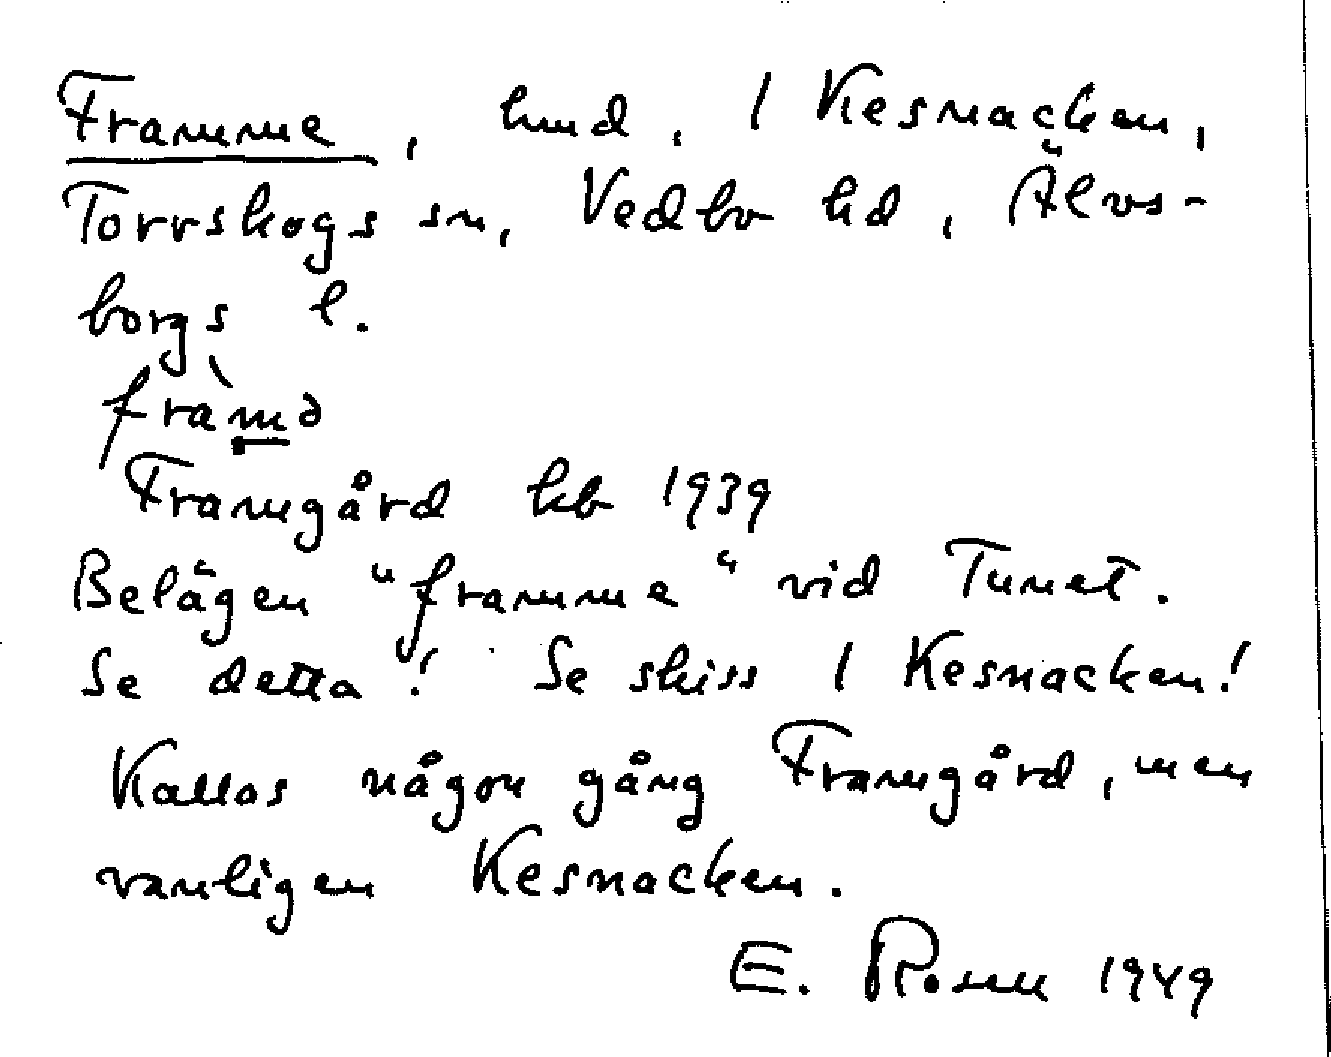 Framme, hmd. 1 Kesnacken,
Torrskogs sn, Vedbo hd, Älvs-
borgs l.
fràmə
Framgård kb 1939
Belägen "framme" vid Tunet.
Se detta! Se skiss 1 Kesnacken!
Kallas någon gång Framgård, men
vanligen Kesnacken.
E. Rosell 1949